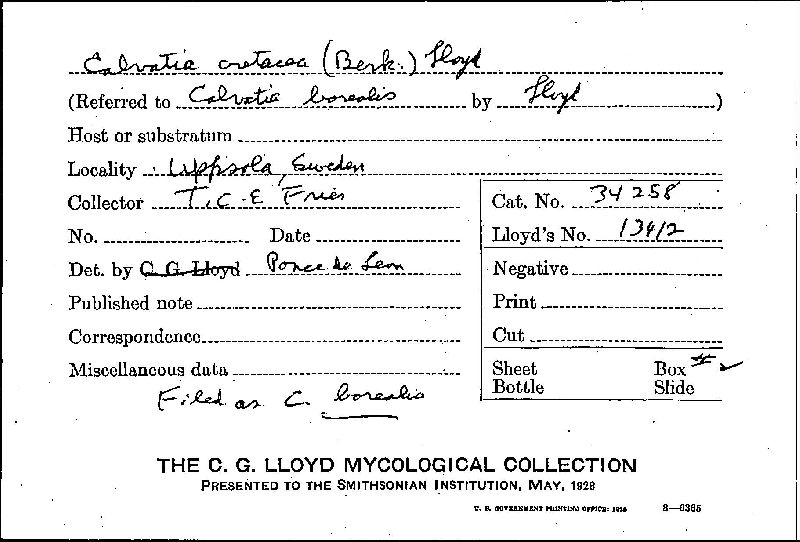 Calvatia cretacea (Berk.) Lloyd
(Referred to Calvatia borealis by Lloyd)
Host or substratum
Locality Uppsala, Sweden
Collector T.C.E Fries
Cat. No. 34258
No. Date
Lloyd's No. 13412
Det. by C. G. Lloyd Ponce de Leon
Negative
Published note
Print
Correspondence
Cut
Miscellaneous data
Sheet Box #
Bottle Slide
Filed as C. borealis
THE C. G. LLOYD MYCOLOGICAL COLLECTION
PRESENTED TO THE SMITHSONIAN INSTITUTION, MAY, 1928
U. S. GOVERNMENT PRINTING OFFICE: 1928 8—6385